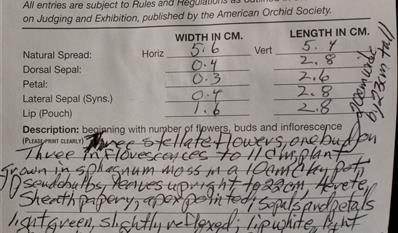 All entries are subject to Rules and Regulations as outlined in
on Judging and Exhibition, published by the American Orchid Society.
WIDTH IN CM. LENGTH IN CM.
Natural Spread: Horiz 5.6 Vert 5.4
Dorsal Sepal: 0.4 2.8
Petal: 0.3 2.6
Lateral Sepal (Syns.) 0.4 2.8
Lip (Pouch) 1.6 2.8
wide by 23cm tall
Description: beginning with number of flowers, buds and inflorescence
(PLEASE PRINT CLEARLY) Three stellate flowers, one bud on
Three inflorescences to 11 cm; plant
grown in sphagnum moss in a 10cm clay pot;
pseudobulbs, leaves upright to 23 cm, terete,
sheath papery, apex pointed; sepals and petals
light green, slightly reflexed; lip white, faint